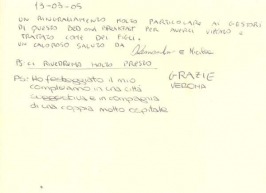 13-03-05
UN RINGRAZIAMENTO MOLTO PARTICOLARE AI GESTORI
DI QUESTO BED AND BREAKFAST PER AVERCI VIZIATO E
TRATTATO COME DEI FIGLI.
UN CALOROSO SALUTO DA Alessandro E
PS: CI RIVEDREMO MOLTO PRESTO
PS: Ho festeggiato il mio
compleanno in una città
suggestiva e in compagnia
di una coppia molto ospitale
GRAZIE
VERONA